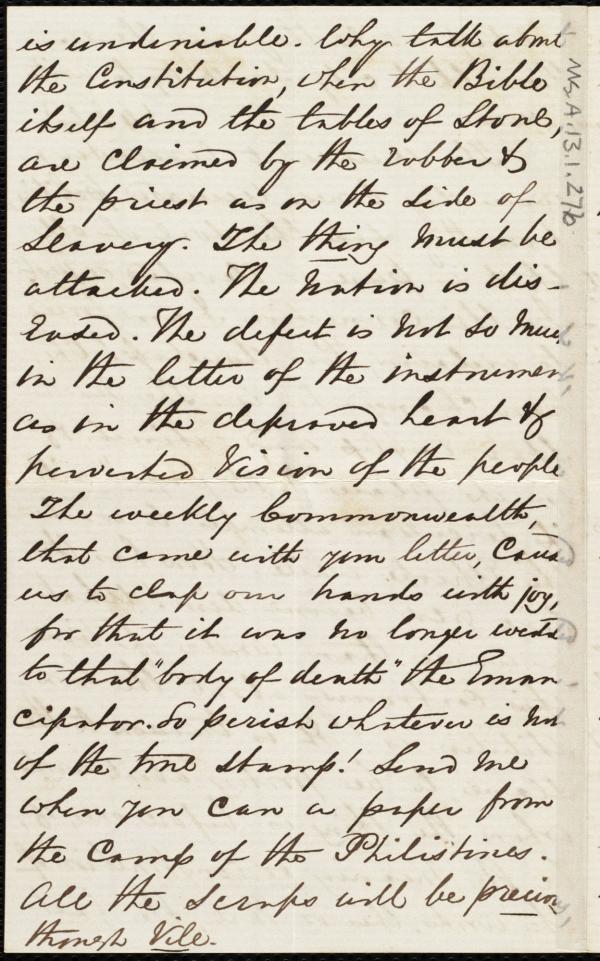 is undeniable. Why talk about
the Constitution, when the Bible
itself and the tables of Stone,
are claimed by the robber &
the priest as on the side of
Slavery. The thing must be
attacked. The Nation is dis-
eased. The defect is not so muc
in the letter of the instrumen
as in the depraved heart &
perverted vision of the people
The weekly Commonwealth,
that came with your letter, Caus
us to clap our hands with joy,
for that it was no longer wedd
to that "body of death" the Eman
cipator. So perish whatever is no
of the true stamp! Send me
when you can a paper from
the Camp of the Philistines.
All the scraps will be preciou
though Vile.
Ms.A.13.1.27b